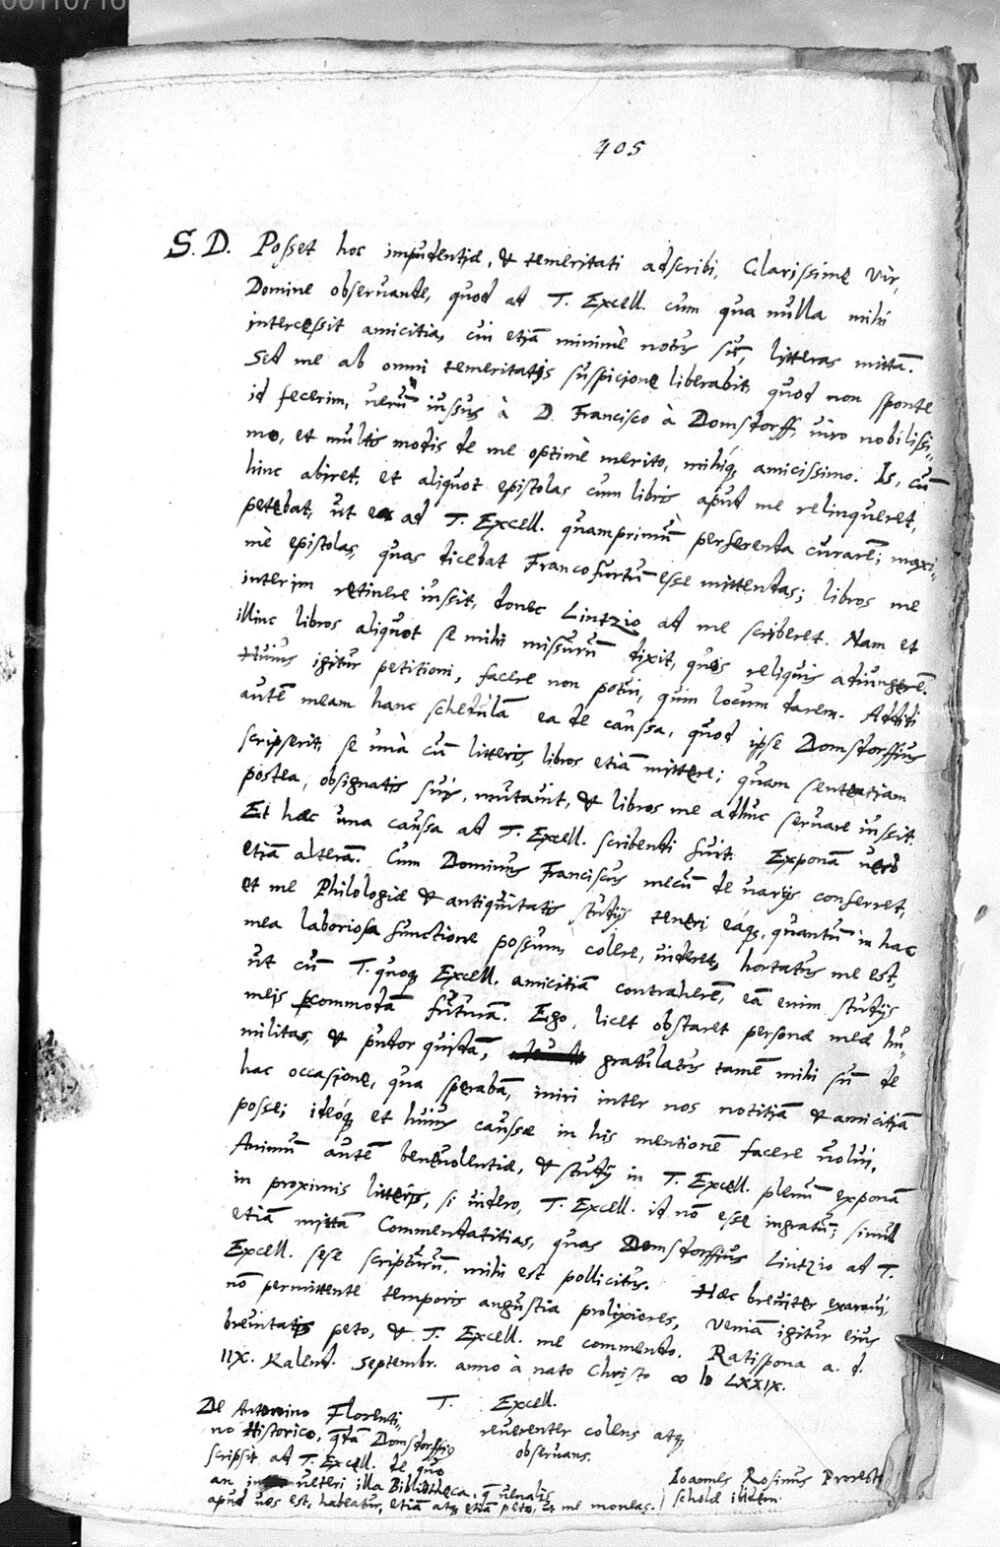 00110716
405
S. D. Posset hoc impudentiæ, & temeritati adscribi, Clarissime Vir,
Domine obseruande, quod ad T. Excell. cum qua nulla mihi
intercessit amicitia, cui etiā minimè notus sū, litteras mittā.
Sed me ab omni temeritatis suspicione liberabit, quod non sponte
id fecerim, uerùm iussus à D. Francisco à Domstorff, uiro nobilissi,,
mo, et multis modis de me optimè merito, mihiq́; amicissimo. Is, cū
hinc abiret, et aliquot epistolas cum libris apud me relinqueret,
petebat, ut eas ad T. Excell. quamprimùm perferenda curarē; maxi,,
mè epistolas, quas dicebat Francofurtū esse mittendas; libros me
interim retinere iussit, donec Lintzio ad me scriberet. Nam et
illinc libros aliquot se mihi missurū dixit, quos reliquis adiungerē.
Huius igitur petitioni, facere non potui, quin locum darem. Addidi
autē meam hanc schedulā ea de caussa, quod ipse Domstorffius
scripserit, se unà cū litteris, libros etiā mittere; quam sententiam
postea, obsignatis suis, mutauit, & libros me adhuc seruare iussit.
Et hæc una caussa ad T. Excell. scribendi fuit. Exponā uero
etiā alterā. Cum Dominus Franciscus mecū de varijs conferret,
et me Philologiæ & antiquitatis studijs teneri, eáq;, quantū in hac
mea laboriosa functione possum, colere, uideret, hortatus me est,
ut cū T. quoq; Excell. amicitiā contraherē, eā enim studijs
meis commodā futurā. Ego, licet obstaret personæ meæ hu,,
militas, & pudor quidā, gratulatus tamē mihi sū de
hac occasione, qua sperabā, iniri inter nos notitiā & amicitiā
posse; ideóq; et huius caussæ in his mentionē facere uolui.
Animū autē beneuolentiæ, & studij in T. Excell. plenū exponā
in proximis litteris, si uidero, T. Excell. id nō esse ingratū; simul
etiā mittā Commendatitias, quas Domstorffius Lintzio ad T.
Excell. sese scripturū, mihi est pollicitus. Hæc breuiter exaraui,
nō permittente temporis angustia prolixiores, Veniā igitur eius
breuitatis peto, & T. Excell. me commendo. Ratispona a. d.
IIX. Kalend. Septembr. anno à nato Christo ∞ IↃ LXXIX.
T. Excell.
reuerenter colens atq;
obseruans.
Ioannes Rosinus Prorector
scholæ ibidem.
De Antonino Florenti,,
no Historico, Domstorffius
scripsit ad T. Excell. de quo
an ueteri illa Bibliotheca, q̄ uenalis
apud uos est, habeatur, etiā atq; etiā peto, ut me moneas.